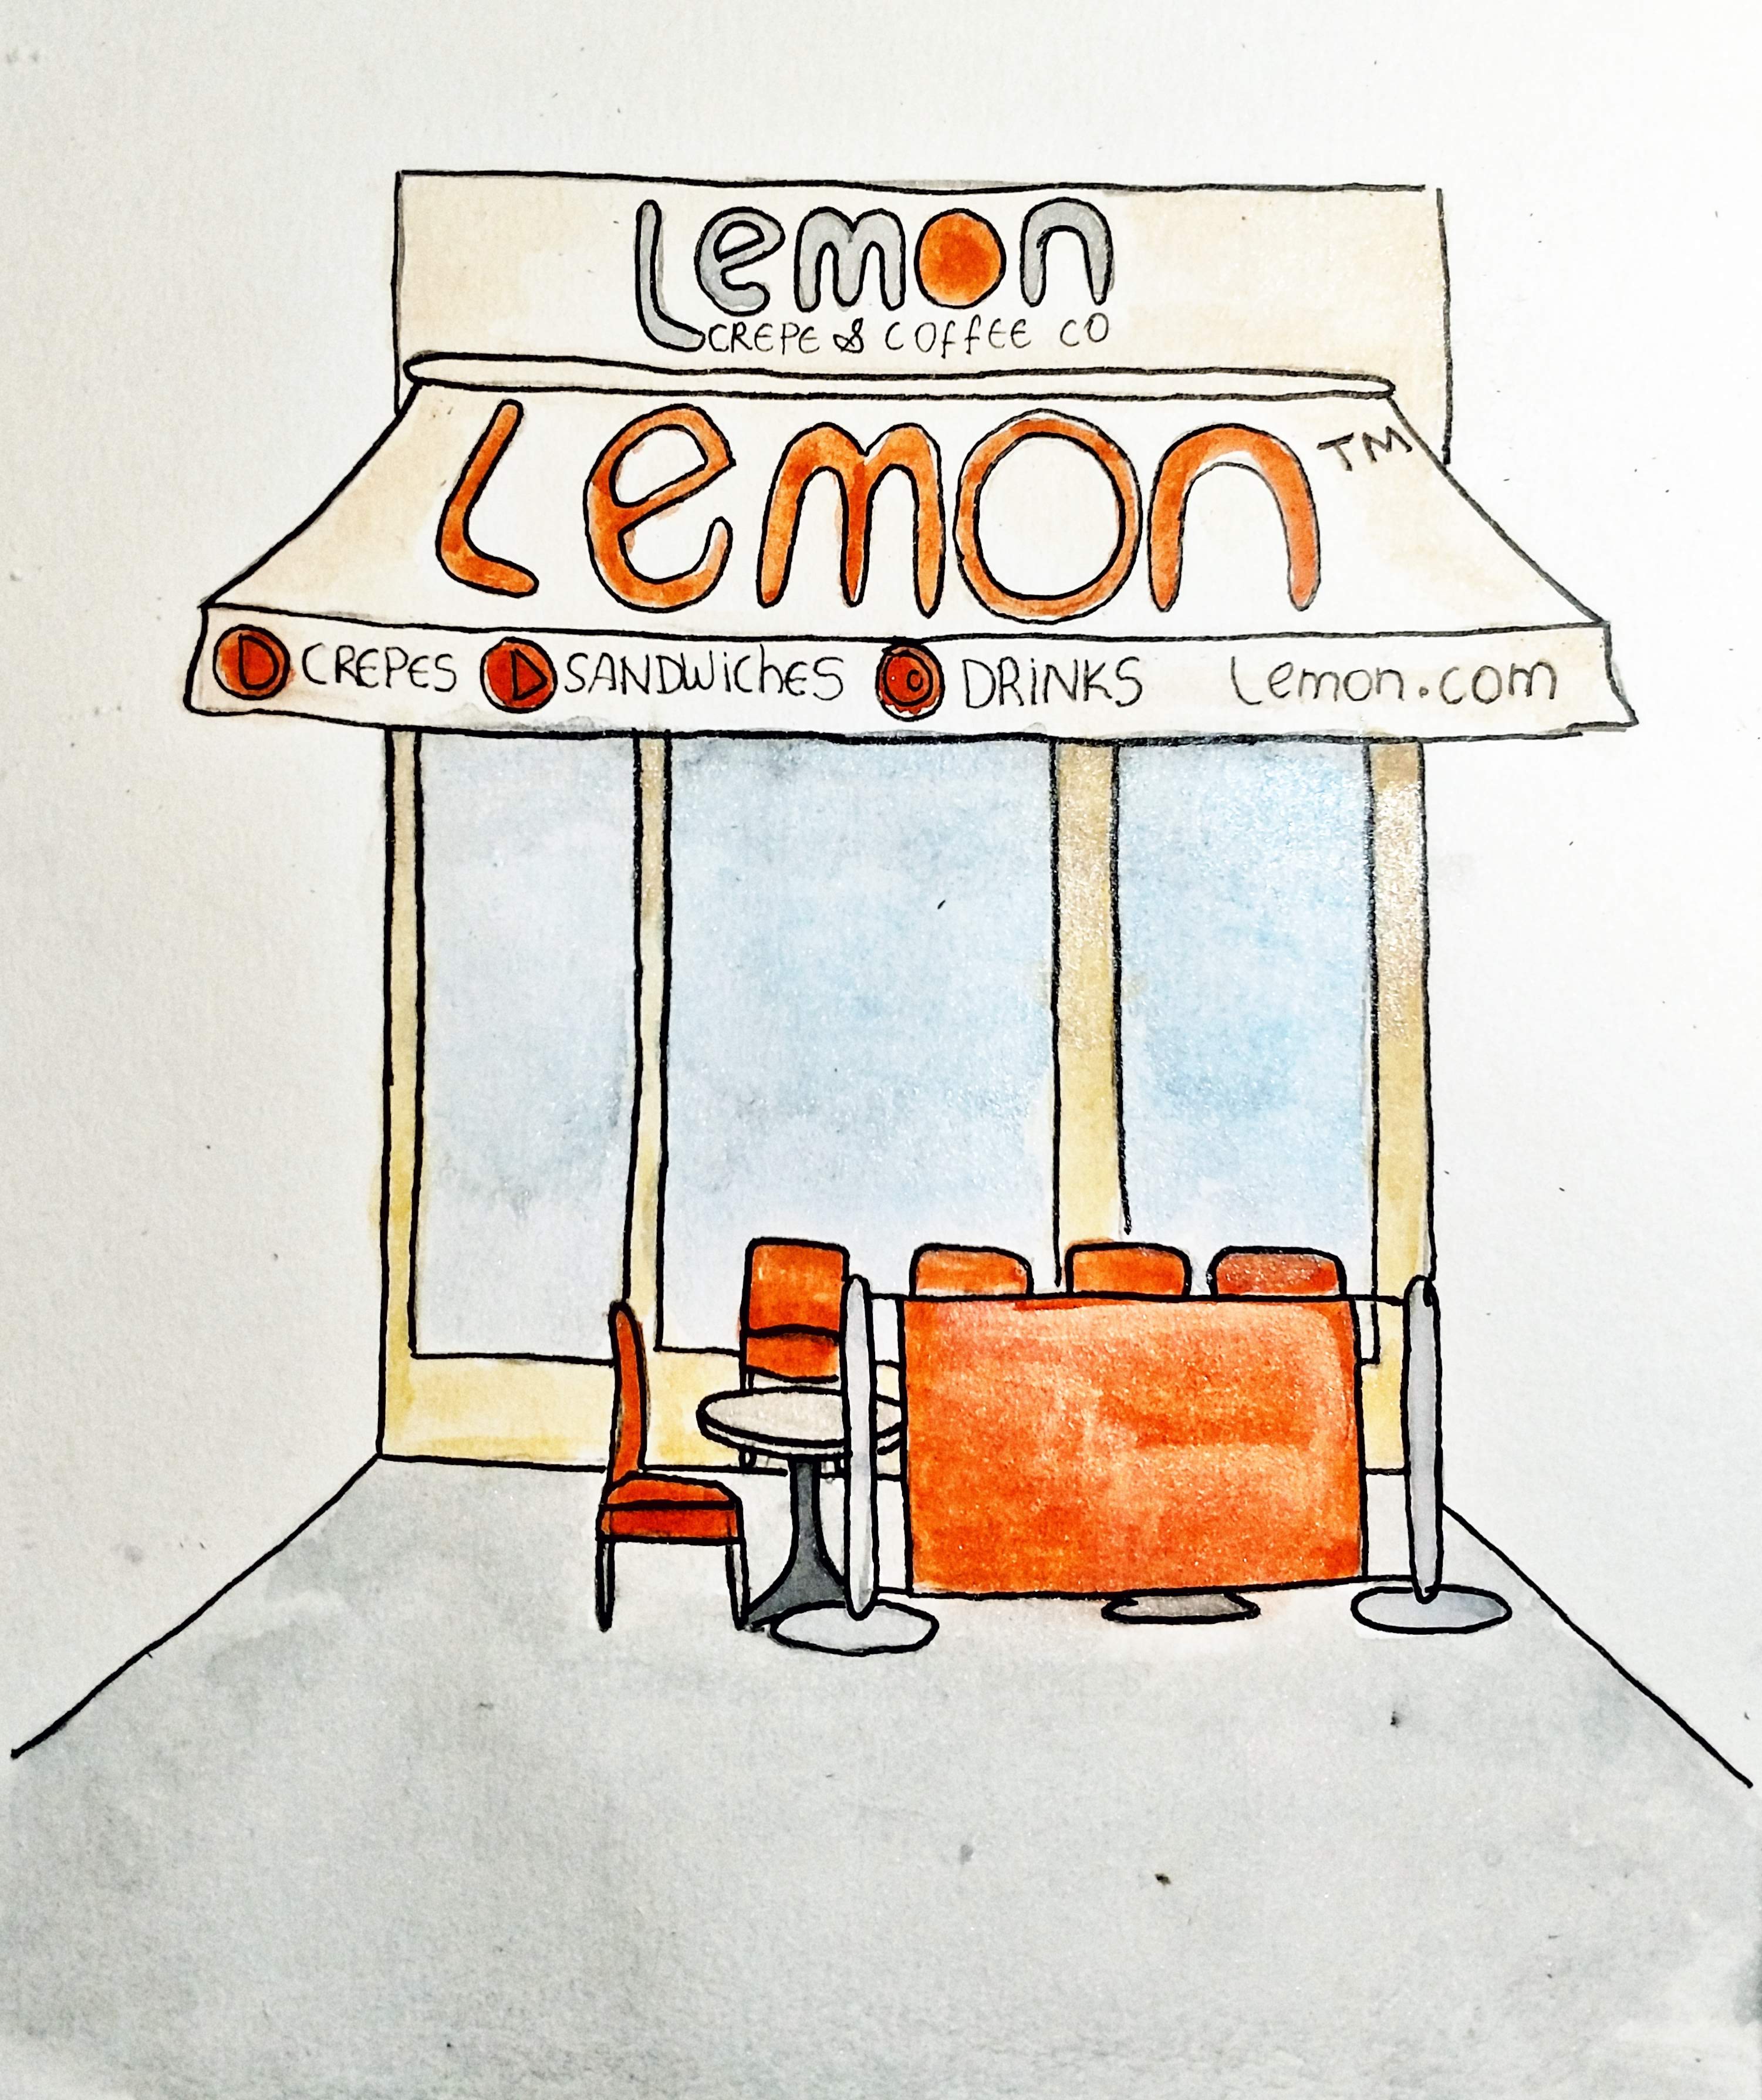 Lemon
CREPE & COFFEE CO
Lemon™
CREPES SANDWichES DRINKS Lemon.com